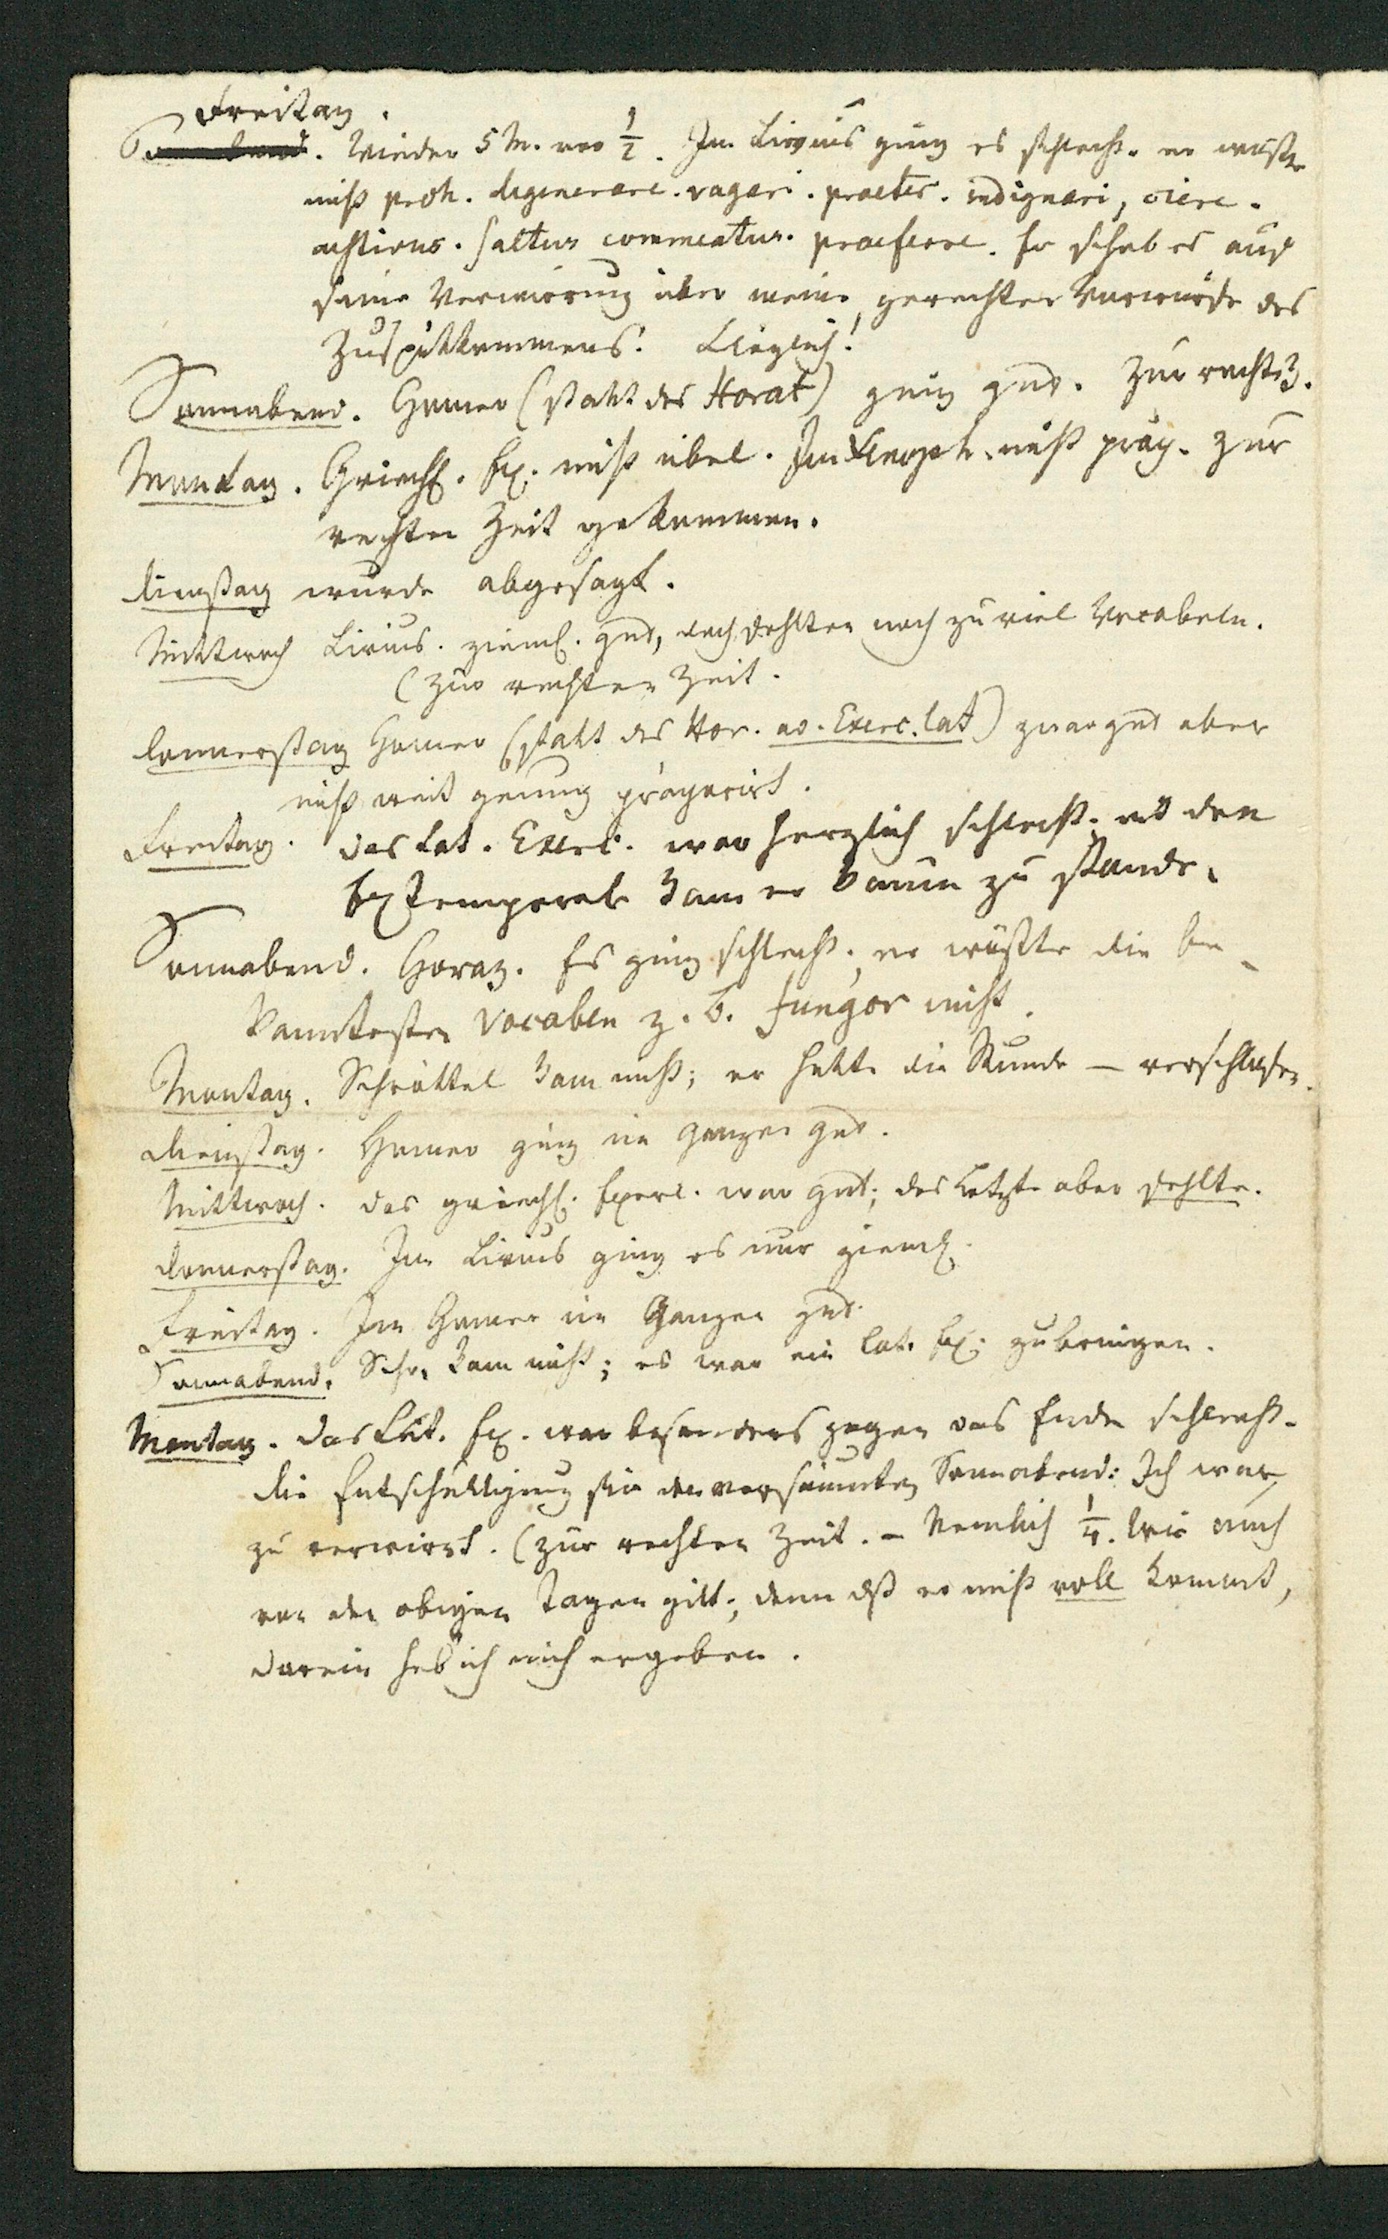 Freitag.
Sonnabend. Wieder 5 M. vor ½. Im Livius ging es schlecht. er wußte
nicht proh. degenerare. vagari. praeter. indignari, ciere.
aestivus. saltus commeatus. praeferre. Er schob es auf
seine Verwirrung über meine gerechten Vorwürfe des
Zuspätkommens! Kläglich!
Sonnabend. Homer (statt des Horat) ging gut. Zur recht. Z.
Montag. Griech. Ex. nicht übel. Im Xenoph. nicht präp. Zur
rechten Zeit gekommen.
Dienstag wurde abgesagt.
Mittwoch Livius. zieml. gut, doch fehlten noch zu viel Vocabeln.
(Zur rechten Zeit.
Donnerstag Homer (statt des Hor. ad. Exerc. lat) zwar gut aber
nicht weit genung präparirt.
Freitag. Das Lat. Exerc. war herzlich schlecht. mit dem
Extemporale kam er kaum zu stande.
Sonnabend. Horaz. Es ging schlecht; er wußte die be-
kanntesten Vocabeln z. B. fungor nicht.
Montag. Schröttel kam nicht; er hatte die Stunde — verschlafen.
Dienstag. Homer ging im Ganzen gut.
Mittwoch. Das griech. Exerc. war gut; das Letzte aber fehlte.
Donnerstag. Im Livius ging es nur zieml.
Freitag. Im Homer im Ganzen gut.
Sonnabend. Schr. kam nicht; es war ein lat. Ex. zu bringen.
Montag. Das Lat. Ex. war besonders gegen das Ende schlecht.
Die Entschuldigung für den versäumten Sonnabend: Ich war
zu verwirrt. (Zur rechten Zeit. – Nemlich ¼. Wie auch
von den obigen Tagen gilt; denn dß er nicht voll kommt,
darein hab ich mich ergeben.